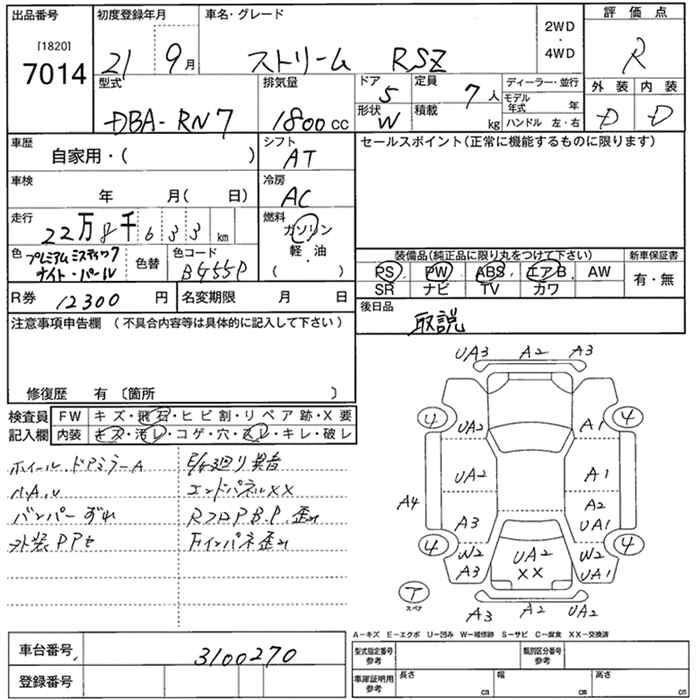 出品番号
[1820]
7014
初度登録年月
21 9月
車名・グレード
ストリーム RSZ
2WD
・
4WD
評価点
R
外装 内装
D D
型式
DBA-RN7
排気量
1800cc
ドア
5
定員
7人
形状
W
積載
kg
ディーラー・並行
モデル年式 年
ハンドル 左・右
車歴
自家用・( )
シフト
AT
車検
年 月( 日)
冷房
AC
走行
22万8千633km
燃料
ガソリン
軽・油
( ・ )
色
プレミアムミスティック
ナイト・パール
色替
色コード
B955P
R券
12300円
名変期限 月 日
セールスポイント(正常に機能するものに限ります)
装備品(純正品に限り丸をつけて下さい)
PS PW ABS エアB AW
SR ナビ TV カワ
新車保証書
有・無
後日品
取説
注意事項申告欄(不具合内容等は具体的に記入して下さい)
修復歴 有〔箇所 〕
検査員
記入欄
FW キズ・飛石・ヒビ割・リペア跡・X要
内装 キズ・汚レ・コゲ・穴・スレ・キレ・破レ
ホイール、ドアミラーA
バンパーずれ
外装PPセ
エンドパネルXX
RフロアB.P.歪み
UA3 A2 A3
4 4
UA2 A1
UA2 A1
A4
A3 A2
UA1
4 4
W2 UA2 W2
A3 XX UA1
T
スペア
A3 A2 UA2
A-キズ E-エクボ U-凹み W-補修跡 S-サビ C-腐食 XX-交換済
車台番号
3100270
登録番号
型式指定番号
参考
類別区分番号
参考
車庫証明用
参考
長さ cm
幅 cm
高さ cm